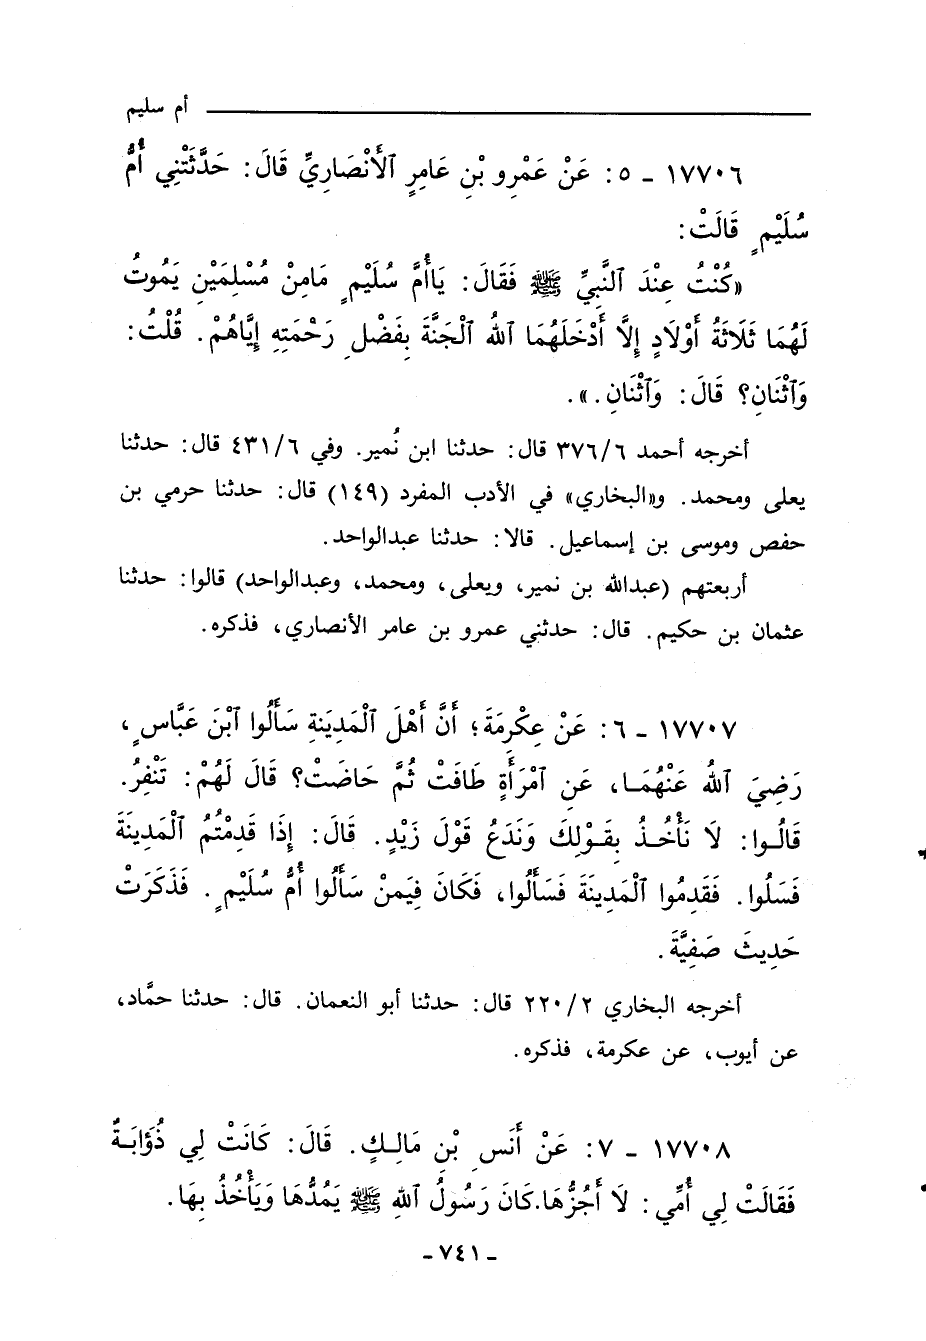 أم سليم
١٧٧٠٦ - ٥: عَنْ عَمْرِو بْنِ عَامِرٍ ٱلْأَنْصَارِيِّ قَالَ: حَدَّثَتْنِي أُمُّ
سُلَيْمٍ قَالَتْ:
«كُنْتُ عِنْدَ ٱلنَّبِيِّ ﷺ فَقَالَ: يَاأُمَّ سُلَيْمٍ مَامِنْ مُسْلِمَيْنِ يَمُوتُ
لَهُمَا ثَلَاثَةُ أَوْلَادٍ إِلَّا أَدْخَلَهُمَا ٱللهُ ٱلْجَنَّةَ بِفَضْلِ رَحْمَتِهِ إِيَّاهُمْ. قُلْتُ:
وَٱثْنَانِ؟ قَالَ: وَٱثْنَانِ.».
أخرجه أحمد ٣٧٦/٦ قال: حدثنا ابن نُمير. وفي ٤٣١/٦ قال: حدثنا
يعلى ومحمد. و«البخاري» في الأدب المفرد (١٤٩) قال: حدثنا حرمي بن
حفص وموسى بن إسماعيل. قالا: حدثنا عبدالواحد.
أربعتهم (عبدالله بن نمير، ويعلى، ومحمد، وعبدالواحد) قالوا: حدثنا
عثمان بن حكيم. قال: حدثني عمرو بن عامر الأنصاري، فذكره.
١٧٧٠٧ - ٦: عَنْ عِكْرِمَةَ؛ أَنَّ أَهْلَ ٱلْمَدِيَنةِ سَأَلُوا ٱبْنَ عَبَّاسٍ،
رَضِيَ ٱللهُ عَنْهُمَا، عَنِ ٱمْرَأَةٍ طَافَتْ ثُمَّ حَاضَتْ؟ قَالَ لَهُمْ: تَنْفِرُ.
قَالُوا: لَا نَأْخُذُ بِقَوْلِكَ وَنَدَعُ قَوْلَ زَيْدٍ. قَالَ: إِذَا قَدِمْتُمُ ٱلْمَدِينَةَ
فَسَلُوا. فَقَدِمُوا ٱلْمَدِينَةَ فَسَأَلُوا، فَكَانَ فِيَمنْ سَأَلُوا أُمُّ سُلَيْمٍ. فَذَكَرَتْ
حَدِيثَ صَفِيَّةَ.
أخرجه البخاري ٢٢٠/٢ قال: حدثنا أبو النعمان. قال: حدثنا حمَّاد،
عن أيوب، عن عكرمة، فذكره.
١٧٧٠٨ - ٧: عَنْ أَنَسِ بْنِ مَالِكٍ. قَالَ: كَانَتْ لِي ذُؤَابَةٌ
فَقَالَتْ لِي أُمِّي: لَا أَجُزُّهَا.كَانَ رَسُولُ ٱللهِ ﷺ يَمُدُّهَا وَيَأْخُذُ بِهَا.
- ٧٤١ -